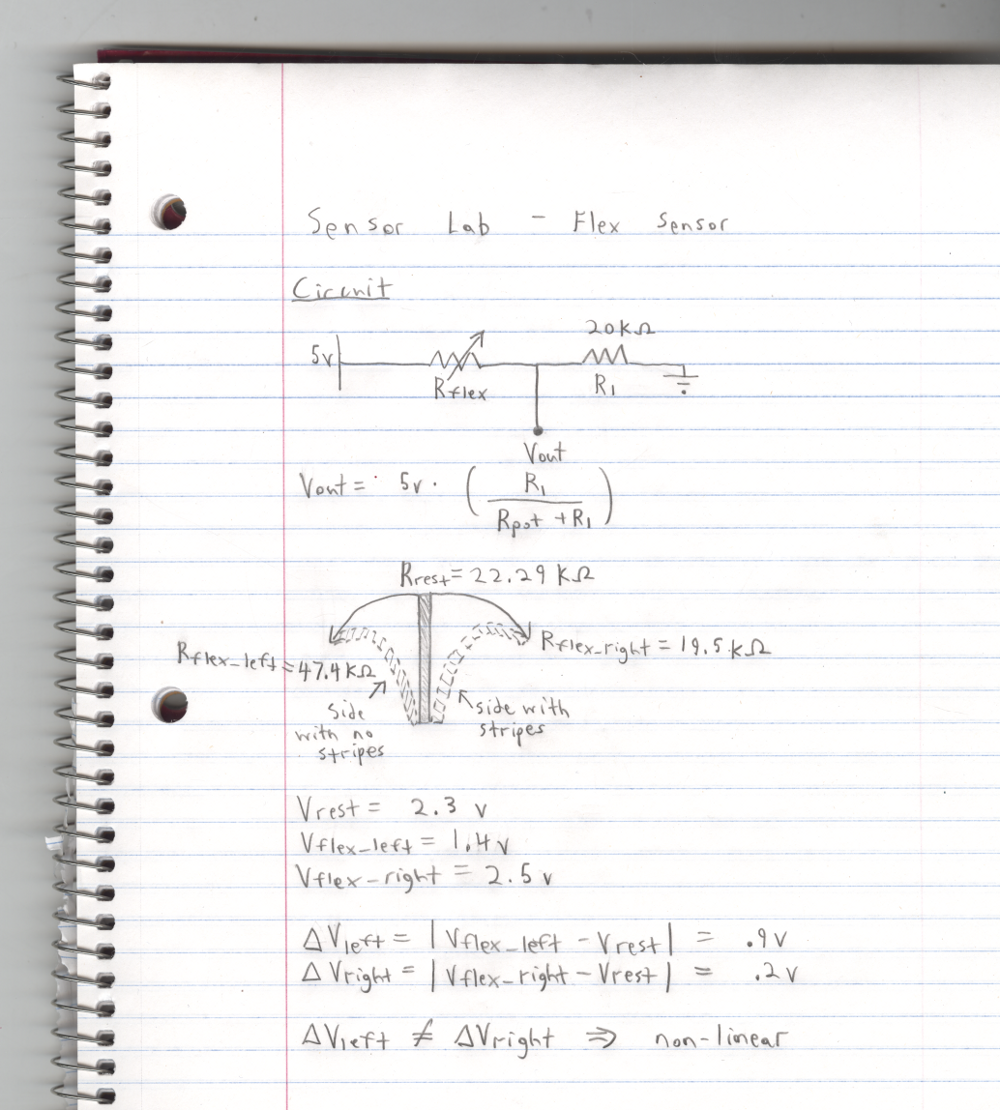 Sensor Lab - Flex Sensor
Circuit
20KΩ
5v
Rflex
R1
Vout
Vout = 5v · ( R1 / Rpot + R1 )
Rrest = 22.29 KΩ
Rflex_right = 19.5 KΩ
Rflex_left = 47.4 KΩ
side with no stripes
side with stripes
Vrest = 2.3 v
Vflex_left = 1.4 v
Vflex-right = 2.5 v
ΔVleft = | Vflex_left - Vrest | = .9 v
ΔVright = | Vflex-right - Vrest | = .2 v
ΔVleft ≠ ΔVright ⇒ non-linear